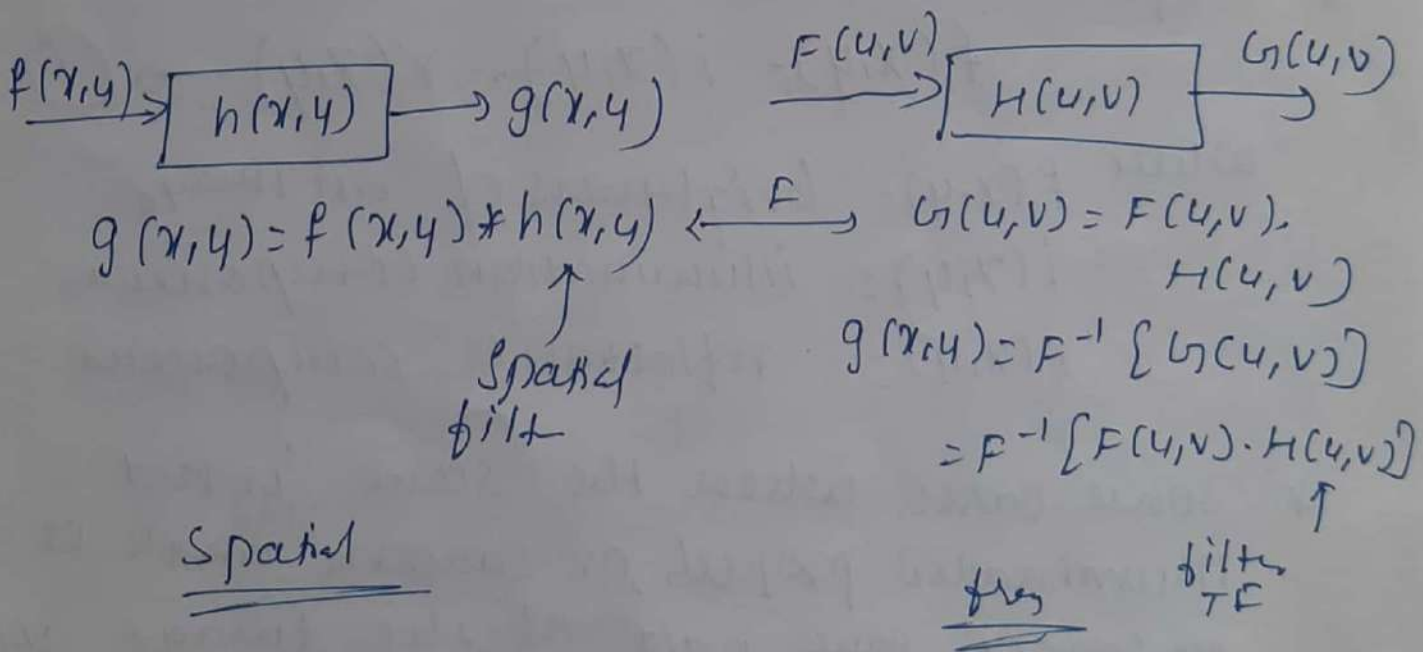 f(x,y) h(x,y) g(x,y)
F(u,v) H(u,v) G(u,v)
g(x,y) = f(x,y) * h(x,y) ⟷ F G(u,v) = F(u,v).
H(u,v)
Spatial
filt
g(x,y) = F⁻¹ {G(u,v)}
= F⁻¹ [F(u,v) · H(u,v)]
Spatial
freq
filter
TF